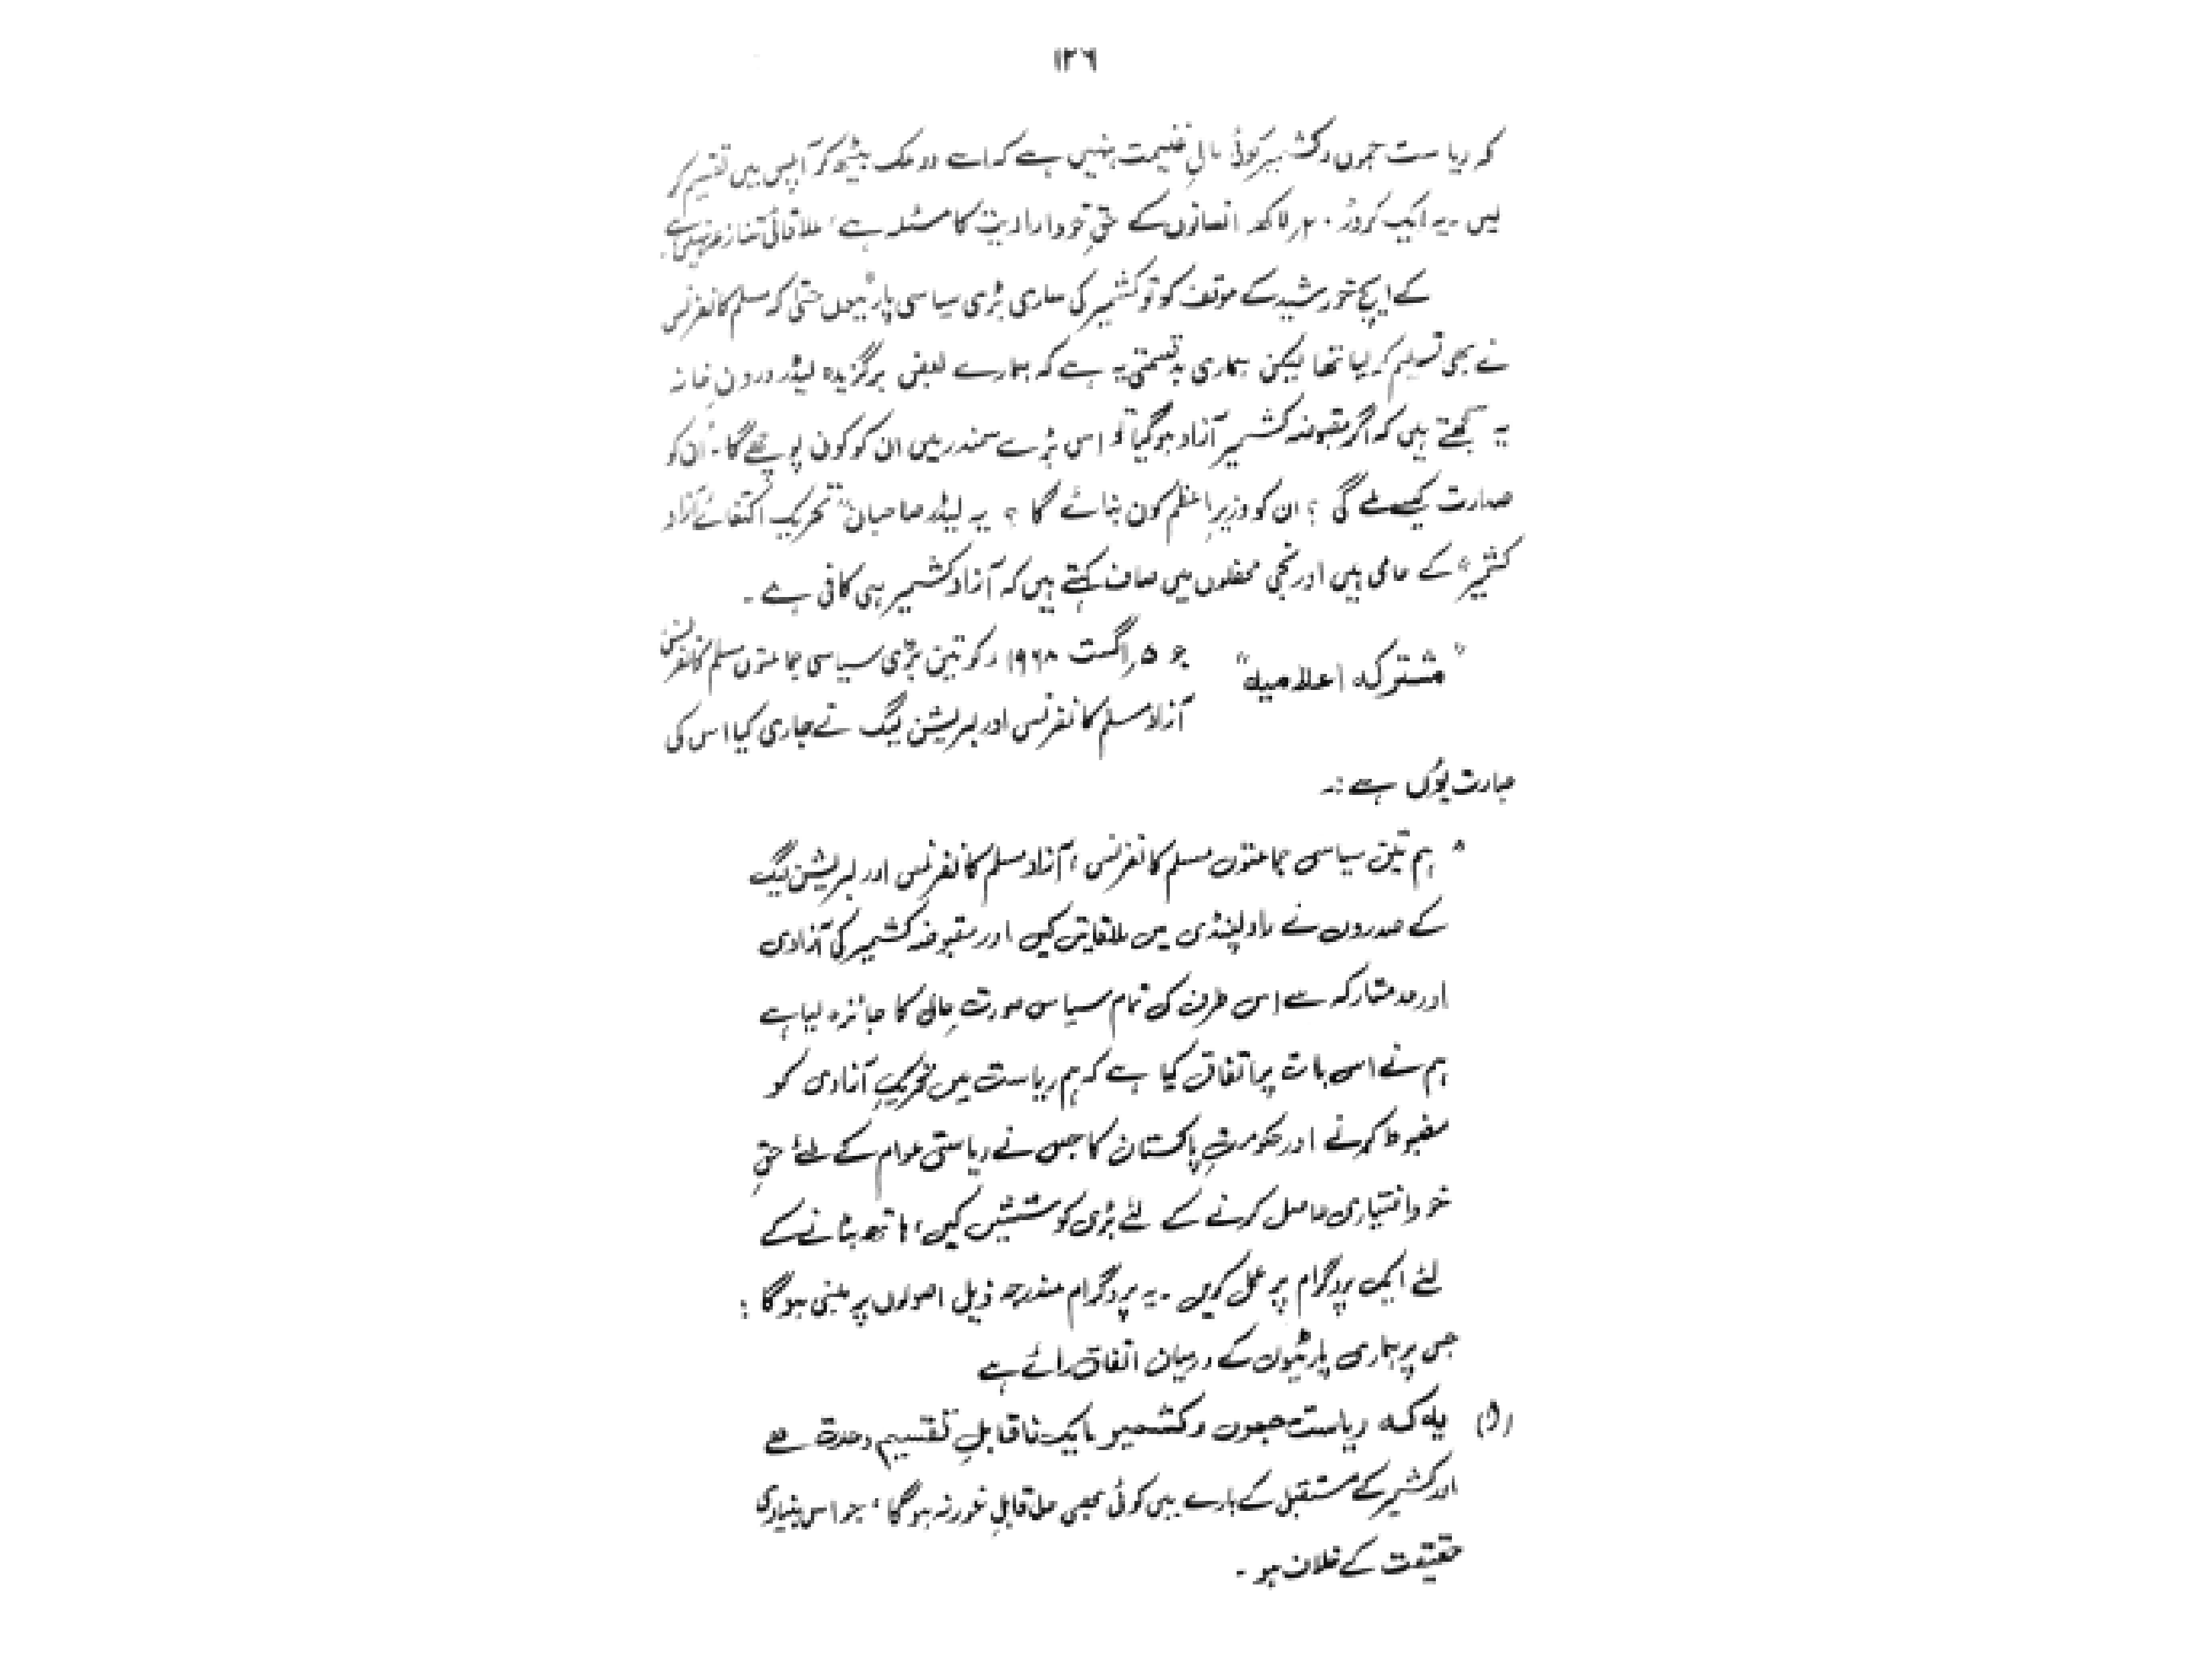 ۱۲۶
کہ ریاست جموں و کشمیر کوئی مالِ غنیمت نہیں ہے کہ اسے دو ملک بیٹھ کر آپس میں تقسیم کر
لیں ۔ یہ ایک کروڑ ۲۰ لاکھ انسانوں کے حقِ خود ارادیت کا مسئلہ ہے، علاقائی تنازعہ نہیں ہے۔
کے ایچ خورشید کے موقف کو تو کشمیر کی ساری بڑی سیاسی پارٹیوں حتیٰ کہ مسلم کانفرنس
نے بھی تسلیم کر لیا تھا لیکن ہماری بدقسمتی یہ ہے کہ ہمارے بعض برگزیدہ لیڈر درونِ خانہ
یہ سمجھتے ہیں کہ اگر مقبوضہ کشمیر آزاد ہو گیا تو اس بڑے سمندر میں ان کو کون پوچھے گا۔ اُن کو
صدارت کیسے ملے گی ؟ ان کو وزیرِ اعظم کون بنائے گا ؟ یہ لیڈر صاحبان "تحریک اکتفائے آزاد
کشمیر" کے حامی ہیں اور نجی محفلوں میں صاف کہتے ہیں کہ آزاد کشمیر ہی کافی ہے ۔
"مشترکہ اعلامیہ" جو ۵ اگست ۱۹۶۸ء کو تین بڑی سیاسی جماعتوں مسلم کانفرنس
آزاد مسلم کانفرنس اور لبریشن لیگ نے جاری کیا اس کی
عبارت یوُں ہے :۔
" ہم تین سیاسی جماعتوں مسلم کانفرنس، آزاد مسلم کانفرنس اور لبریشن لیگ
کے صدروں نے راولپنڈی میں ملاقاتیں کیں اور مقبوضہ کشمیر کی آزادی
اور حد متارکہ سے اس طرف کی تمام سیاسی صورتِ حال کا جائزہ لیا ہے
ہم نے اس بات پر اتفاق کیا ہے کہ ہم ریاست میں تحریکِ آزادی کو
مضبوط کرنے اور حکومتِ پاکستان کا جس نے ریاستی عوام کے لئے حقِ
خود اختیاری حاصل کرنے کے لئے بڑی کوششیں کیں، ہاتھ بٹانے کے
لئے ایک پروگرام پر عمل کریں ۔ یہ پروگرام مندرجہ ذیل اصولوں پر مبنی ہو گا :
جس پر ہماری پارٹیوں کے درمیان اتفاق رائے ہے
(ا) یہ کہ ریاست جموں و کشمیر ایک ناقابلِ تقسیم وحدت ہے
اور کشمیر کے مستقبل کے بارے میں کوئی بھی حل قابلِ غور نہ ہو گا، جو اس بنیادی
حقیقت کے خلاف ہو ۔